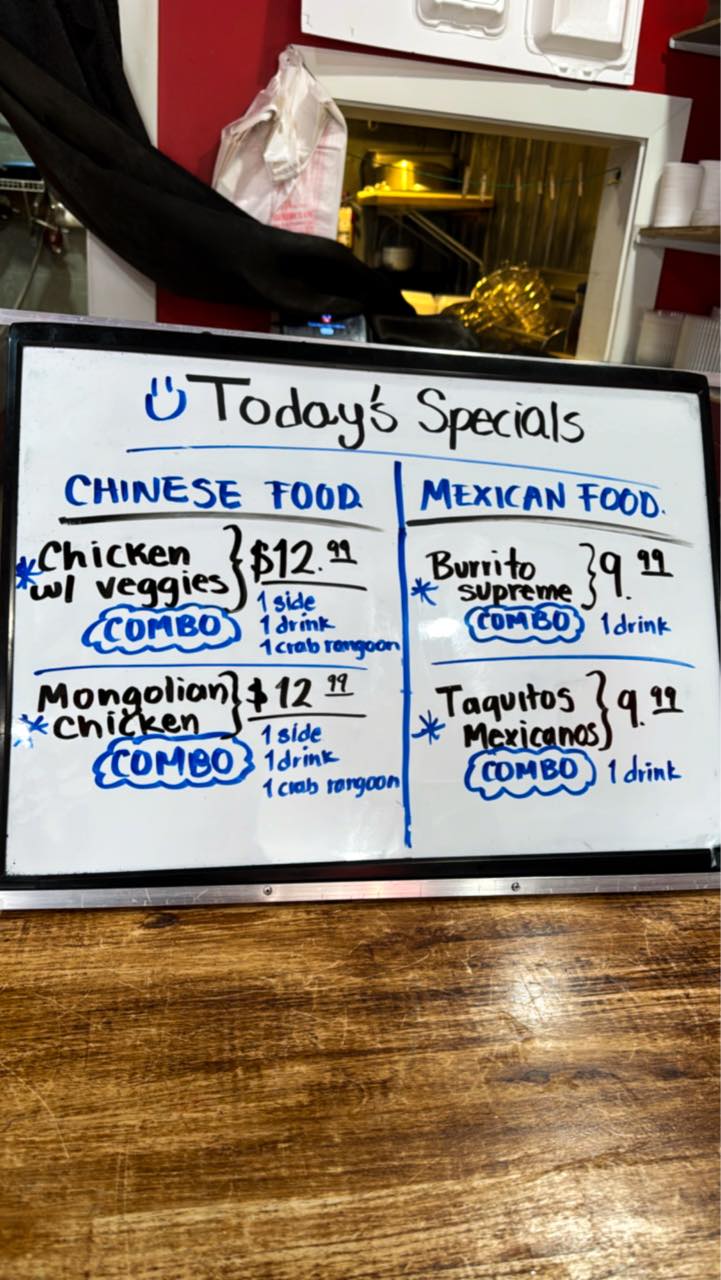 Today's Specials
CHINESE FOOD.
* Chicken
w/ veggies } $12.99
COMBO
1 side
1 drink
1 crab rangoon
Mongolian
* chicken } $12 99
COMBO
1 side
1 drink
1 crab rangoon
MEXICAN FOOD.
Burrito
* supreme } 9.99
COMBO 1 drink
Taquitos
* Mexicanos } 9.99
COMBO 1 drink